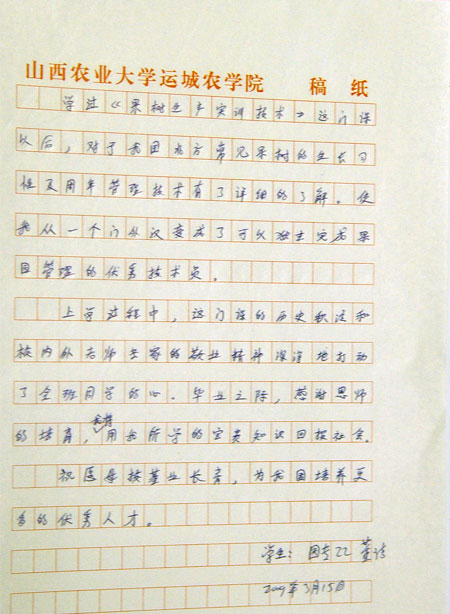 山西农业大学运城农学院 稿 纸
学过《果树生产实训技术》这门课
以后，对于我国北方常见果树的生长习
性及周年管理技术有了详细的了解。使
我从一个门外汉变成了可以独立完成果
园管理的优秀技术员。
上学过程中，这门课的历史积淀和
校内外老师专家的敬业精神深深地打动
了全班同学的心。毕业之际，感谢恩师
的培育，我将用我所学的宝贵知识回报社会。
祝愿母校基业长青，为我国培养更
多的优秀人才。
学生：园专22 董
2009年3月15日